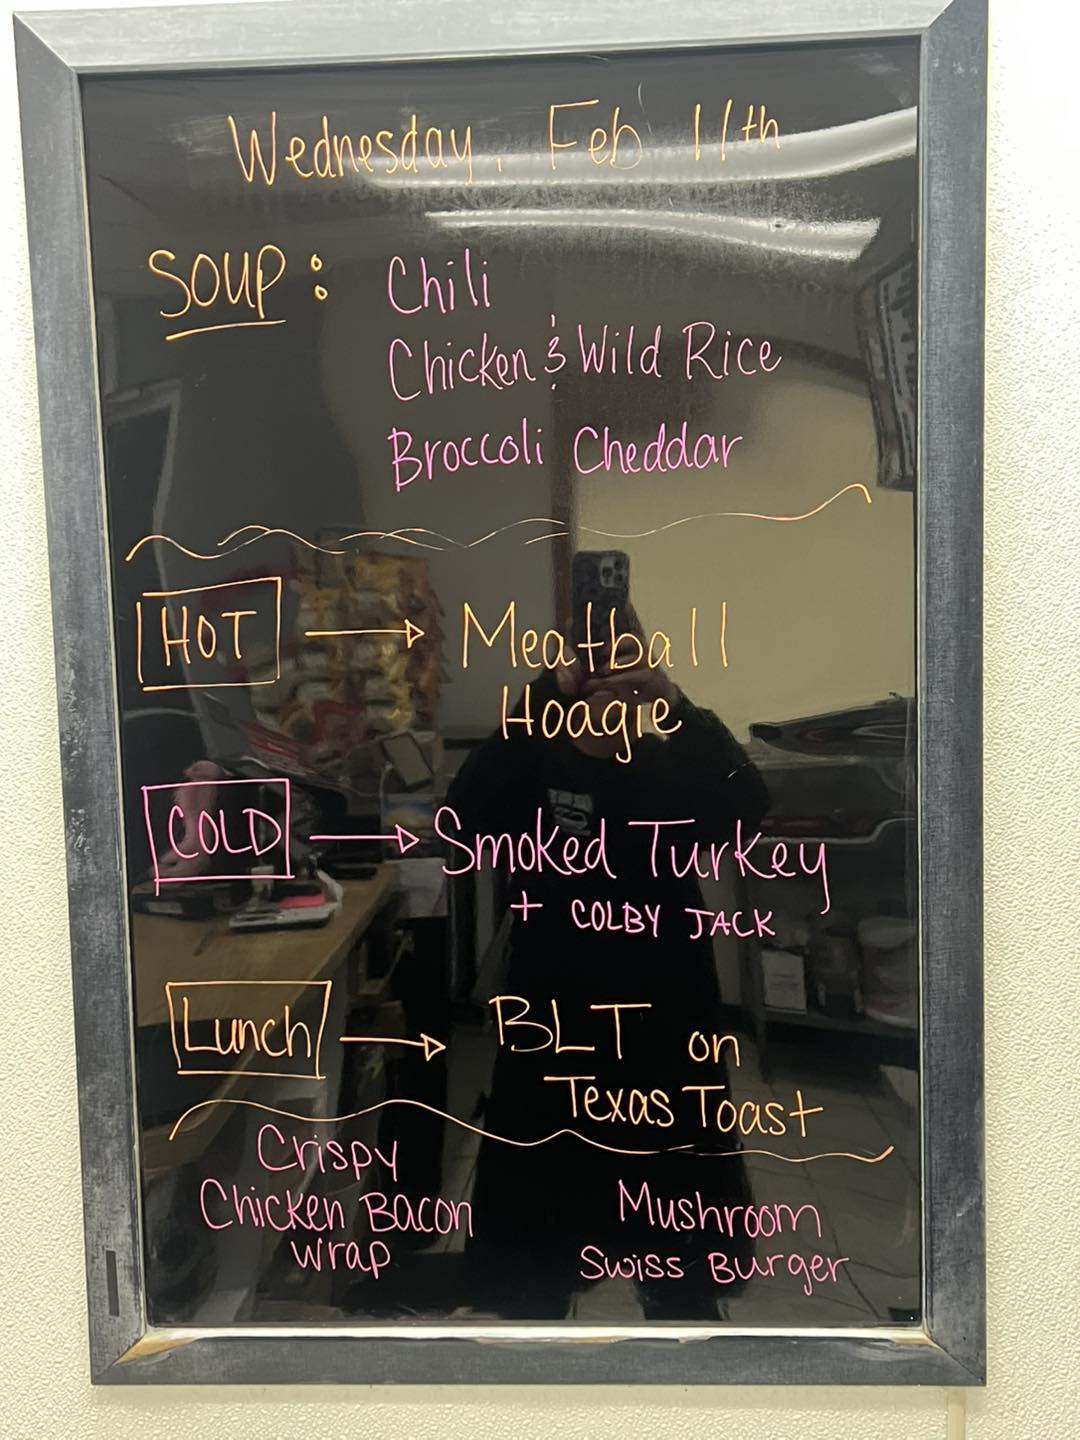 Wednesday, Feb 11th
SOUP: Chili
Chicken & Wild Rice
Broccoli Cheddar
HOT → Meatball
Hoagie
COLD → Smoked Turkey
+ COLBY JACK
Lunch → BLT on
Texas Toast
Crispy
Chicken Bacon
Wrap
Mushroom
Swiss Burger